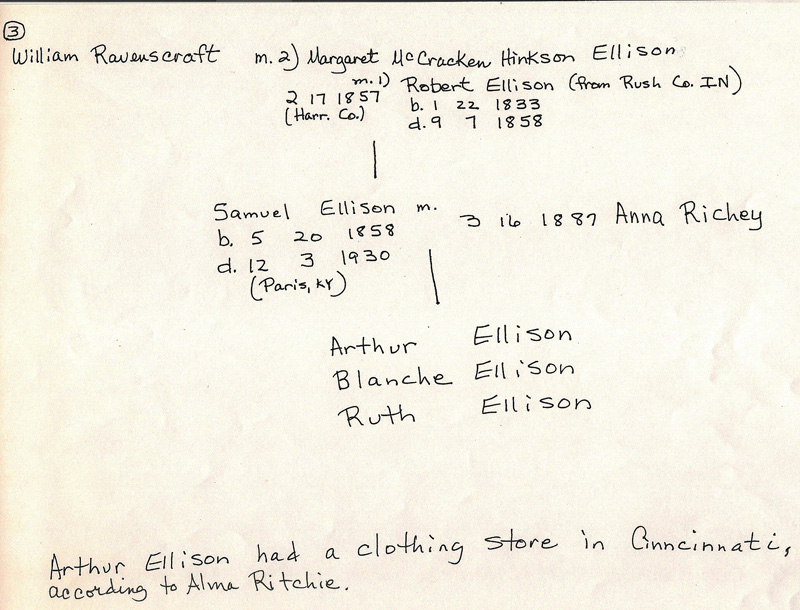 3
William Ravenscraft m. 2) Margaret McCracken Hinkson Ellison
m. 1) Robert Ellison (from Rush Co. IN)
2 17 1857 b. 1 22 1833
(Harr. Co.) d. 9 7 1858
Samuel Ellison m. 3 16 1887 Anna Richey
b. 5 20 1858
d. 12 3 1930
(Paris, KY)
Arthur Ellison
Blanche Ellison
Ruth Ellison
Arthur Ellison had a clothing store in Cinncinnati,
according to Alma Ritchie.